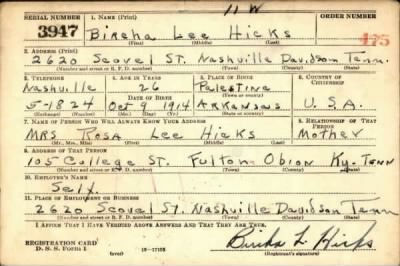 11 W
SERIAL NUMBER 1. NAME (Print) ORDER NUMBER
3947 Bircha Lee Hicks 475
(First) (Middle) (Last)
2. ADDRESS (Print)
2620 Scovel St. Nashville Davidson Tenn.
(Number and street or R. F. D. number) (Town) (County) (State)
3. TELEPHONE 4. AGE IN YEARS 5. PLACE OF BIRTH 6. COUNTRY OF CITIZENSHIP
Nashville 26 Palestine
DATE OF BIRTH (Town or county)
5-1824 Oct 9 1914 Arkansas U.S.A.
(Exchange) (Number) (Mo.) (Day) (Yr.) (State or country)
7. NAME OF PERSON WHO WILL ALWAYS KNOW YOUR ADDRESS 8. RELATIONSHIP OF THAT PERSON
MRS Rosa Lee Hicks Mother
(Mr., Mrs., Miss) (First) (Middle) (Last)
9. ADDRESS OF THAT PERSON
105 College St. Fulton Obion Ky-Tenn
(Number and street or R. F. D. number) (Town) (County) (State)
10. EMPLOYER'S NAME
Self.
11. PLACE OF EMPLOYMENT OR BUSINESS
2620 Scovel St. Nashville Davidson Tenn
(Number and street or R. F. D. number) (Town) (County) (State)
I AFFIRM THAT I HAVE VERIFIED ABOVE ANSWERS AND THAT THEY ARE TRUE.
REGISTRATION CARD
D. S. S. Form 1 (over) 16-17105 Bircha L Hicks
(Registrant's signature)